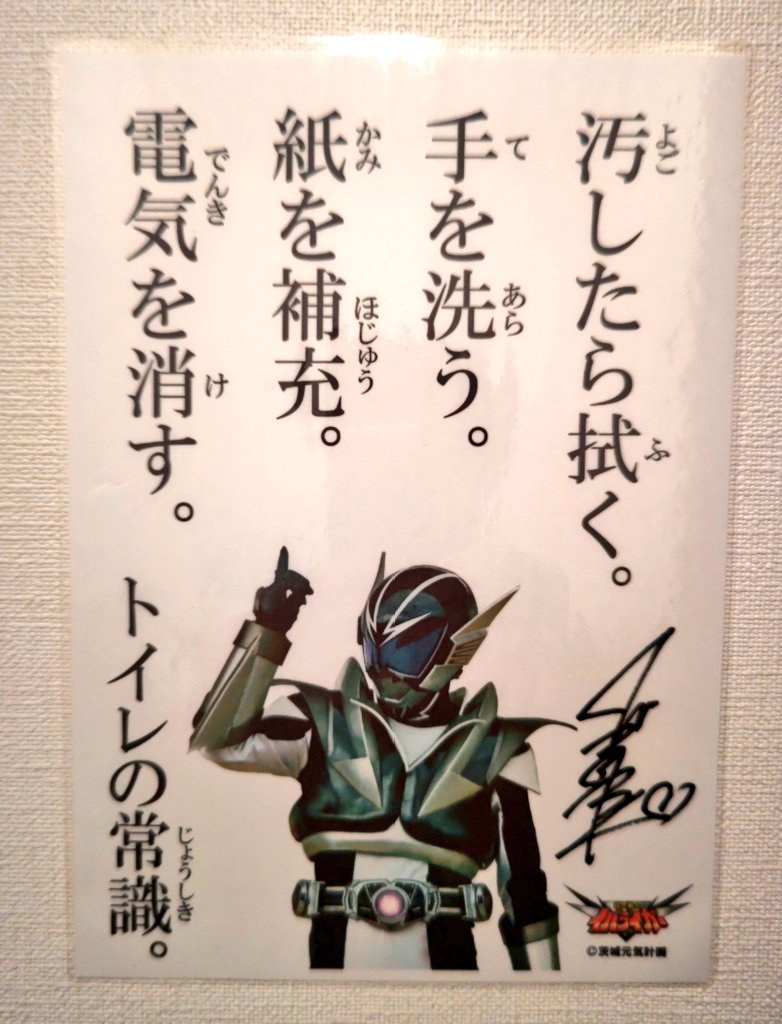 汚したら拭く。
よご
ふ
手を洗う。
て
あら
紙を補充。
かみ
ほじゅう
電気を消す。
でんき
け
トイレの常識。
じょうしき
イバライガー
©茨城元気計画